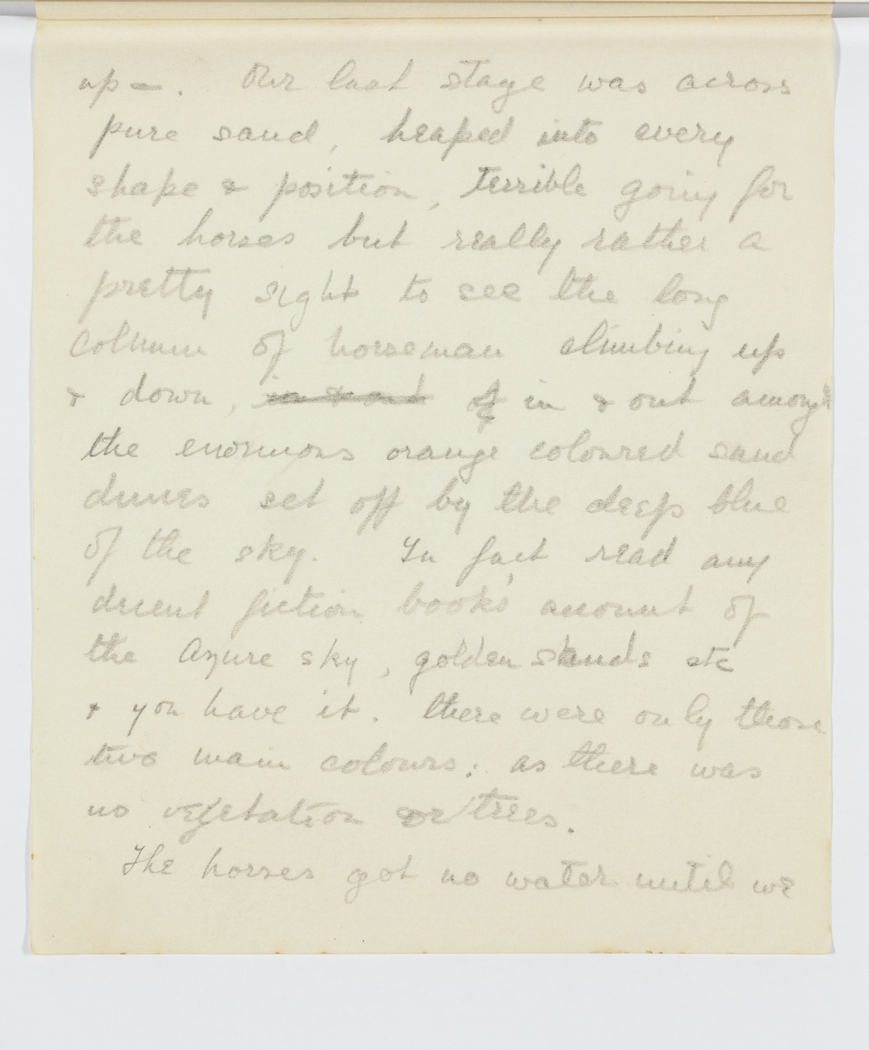 up —. Our last stage was across
pure sand, heaped into every
shape & position, terrible going for
the horses but really rather a
pretty sight to see the long
column of horseman climbing up
& down, in & out of in & out amongst
the enormous orange coloured sand
dunes set off by the deep blue
of the sky. In fact read any
decent fiction book's account of
the Azure sky, golden sands etc
& you have it. there were only those
two main colours; as there was
no vegetation or trees.
The horses got no water until we